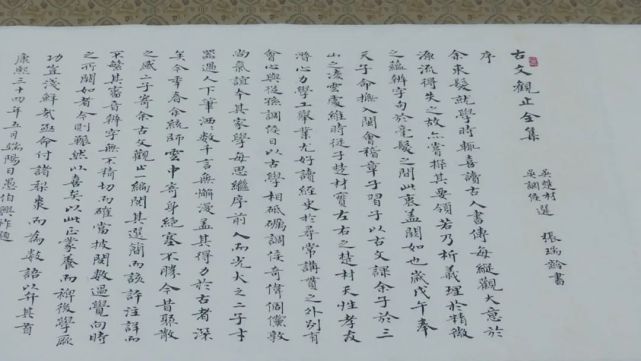 古文觀止全集
吳楚材
吳調侯 選 張瑞齡書
序
余束髮就學時輒喜讀古人書傳每縱觀大意於
源流得失之故亦嘗探其要領若乃析義理於精微
之蘊辨字句於毫髮之間此衷蓋闕如也歲戊午奉
天子命撫入閩會稽章子習子以古文課余子於三
山之凌雲處維時從子楚材實左右之楚材天性孝友
潛心力學工舉業尤好讀經史於尋常講貫之外別有
會心與從孫調侯日以古學相砥礪調侯奇偉倜儻敦
尚氣誼本其家學每思繼序前人而光大之二子才
器過人下筆洒洒數千言無懈漫蓋其得力於古者深
矣今年春余統師雲中寄身絕塞不勝今昔聚散
之感二子寄余古文觀止一編閱其選簡而該評注詳而
不繁其審音辨字無不精切而確當披閱數過覺向時
之所闕如者今則豁然以喜矣以此正蒙養而裨後學厥
功豈淺鮮哉亟命付諸梨棗而為數語以弁其首
康熙三十四年五月端陽日愚伯興祚題